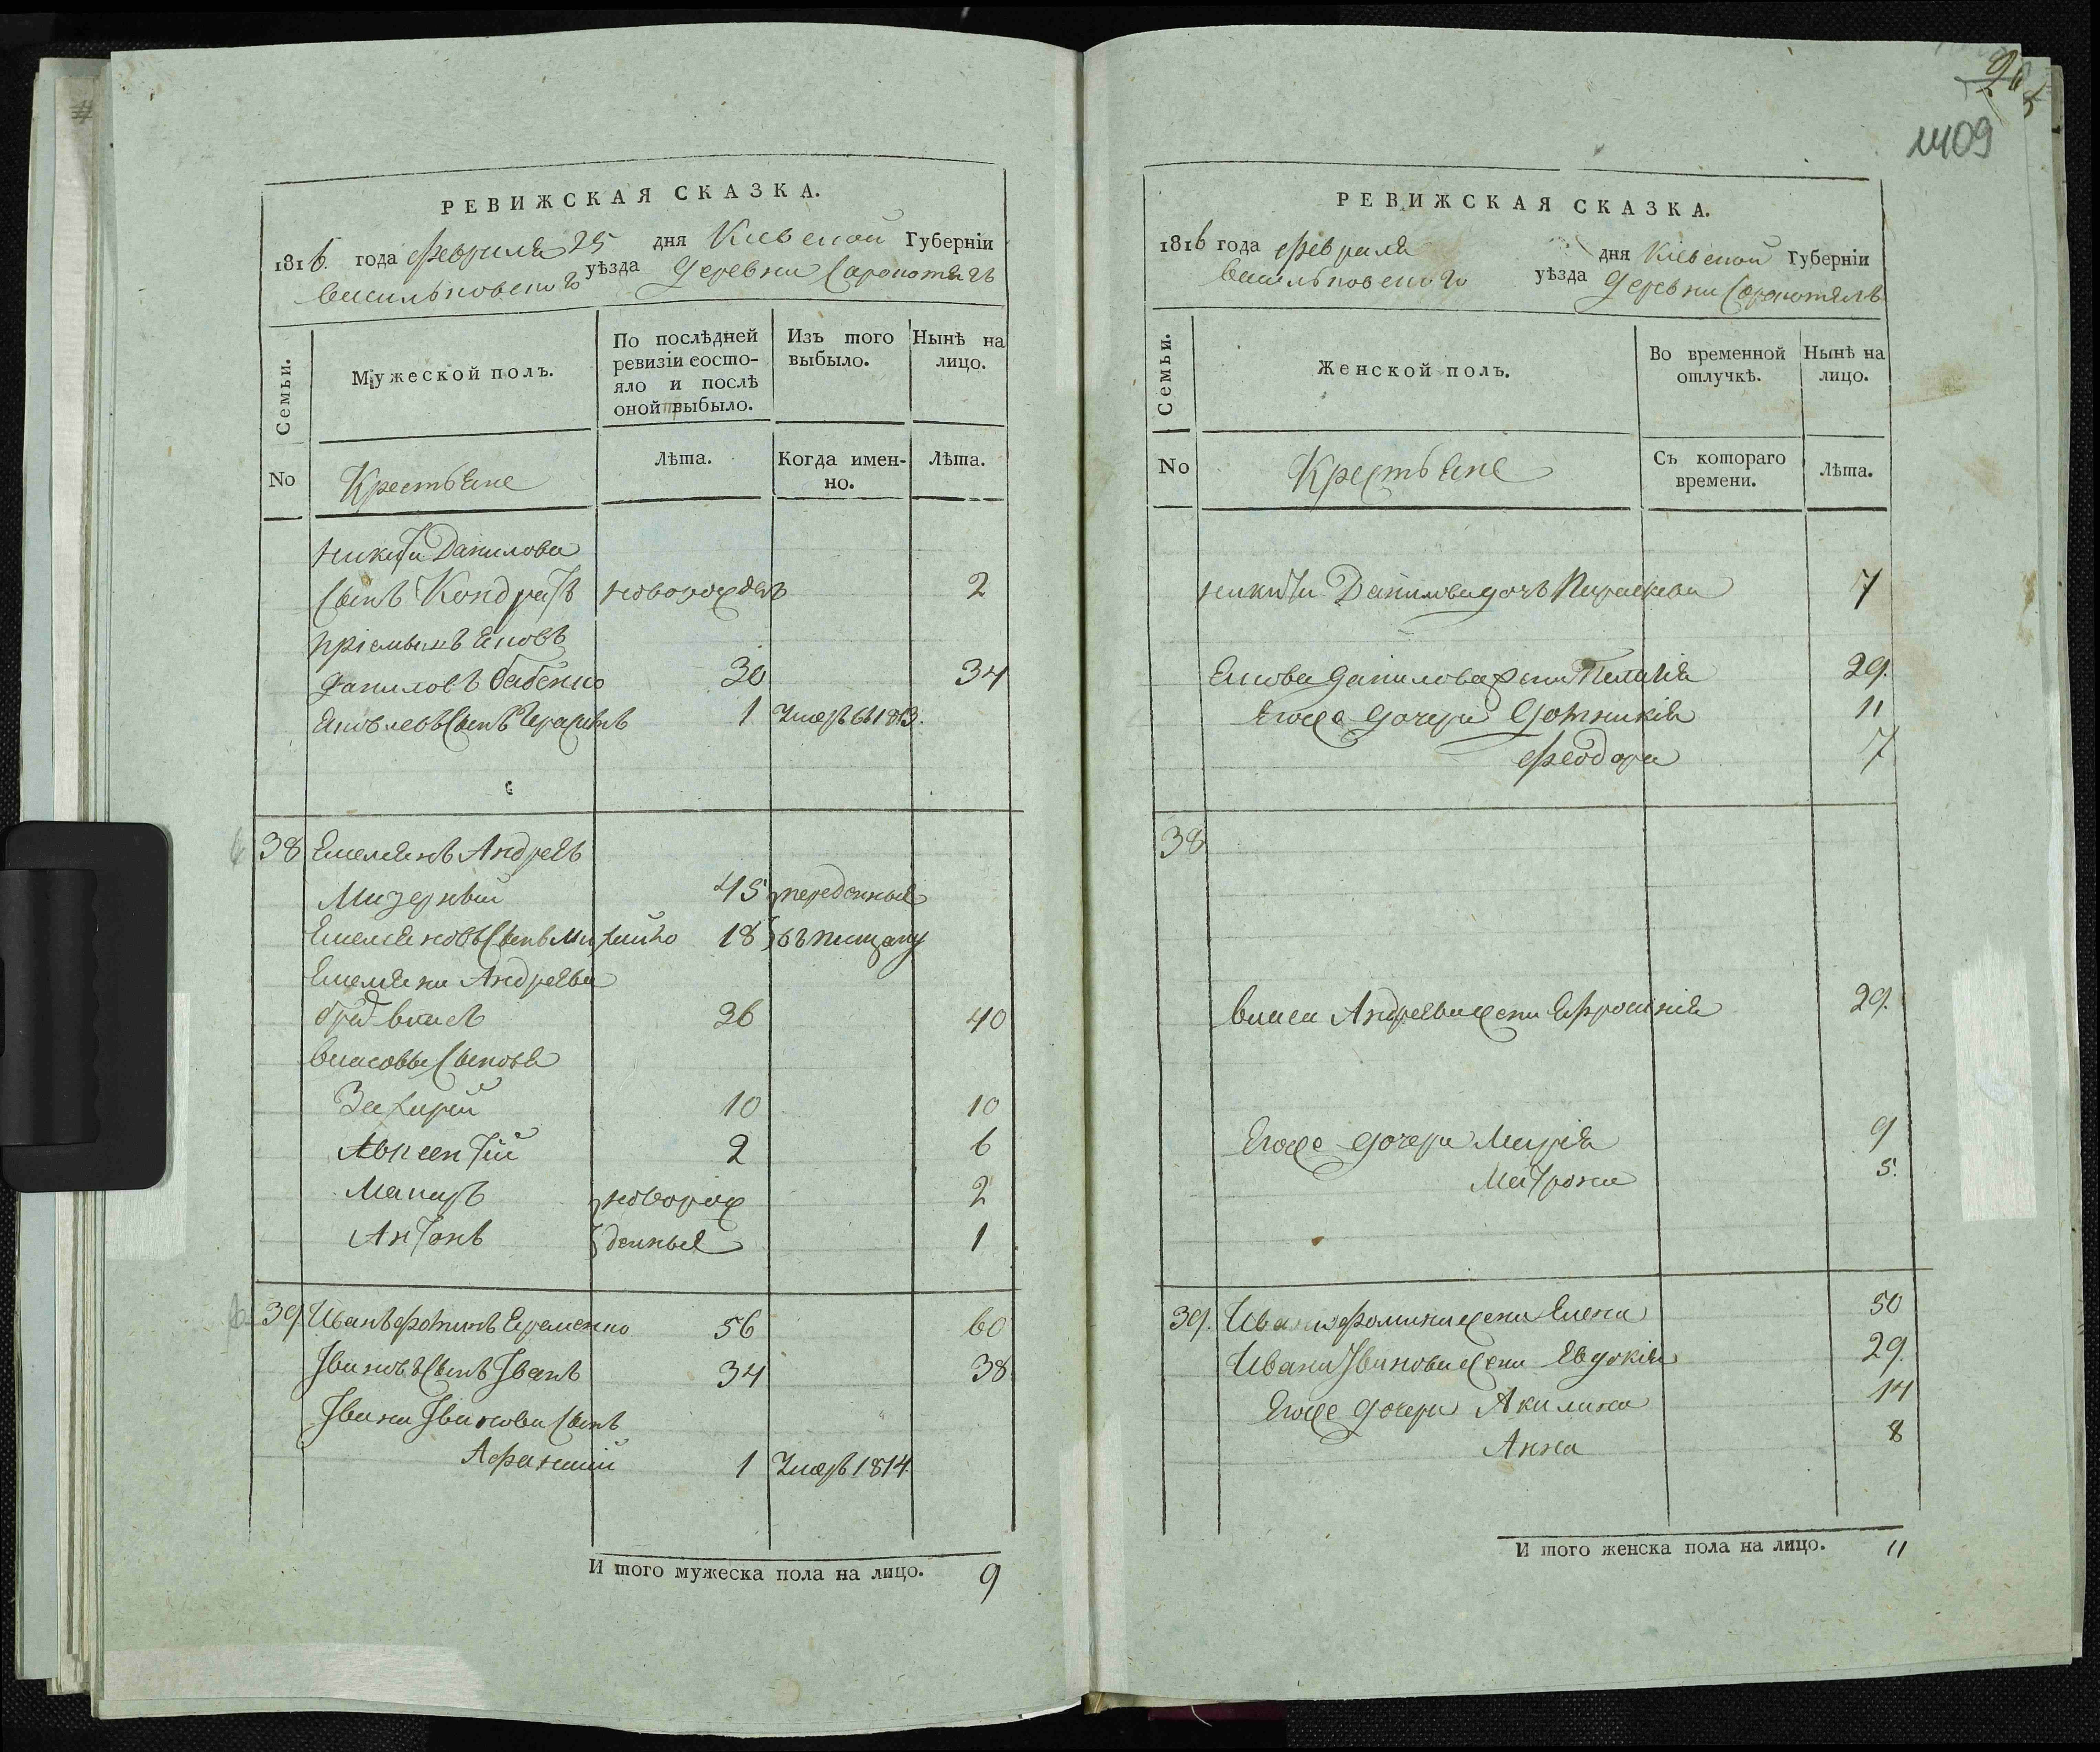 1409
РЕВИЖСКАЯ СКАЗКА.
1816. года февраля 25 дня Киевской Губерніи
Васильковского уѣзда деревни
Семьи.
Мужеской полъ.
По послѣдней ревизіи состояло и послѣ оной выбыло.
Изъ того выбыло.
Нынѣ на лицо.
No
Крестьяне
Лѣта.
Когда именно.
Лѣта.
Никиты Данилова
Сынъ Кондратъ новорожден 2
пріемышъ Яковъ
Даниловъ Бабенко 30 34
Яковлевъ Сынъ Герасимъ 1 Умеръ въ 1813.
38 Емельянъ Андреевъ
Мизерный 45 переданные
Емельяновъ Сынъ Михайло 18 въ
Емельяна Андреева
братъ Власъ 36 40
Власовы Сыновья
Захарій 10 10
Авксентій 2 6
Макаръ новорож 2
Антонъ денные 1
39 Иванъ Фоминъ Еременко 56 60
Ивановъ Сынъ Иванъ 34 38
Ивана Иванова Сынъ
Афанасий 1 Умеръ 1814.
И того мужеска пола на лицо. 9
РЕВИЖСКАЯ СКАЗКА.
1816 года февраля дня Киевской Губерніи
Васильковского уѣзда деревни
Семьи.
Женской полъ.
Во временной отлучкѣ.
Нынѣ на лицо.
No
Крестьяне
Съ котораго времени.
Лѣта.
Никиты Данилова дочь Параскева 7
Якова Данилова жена Пелагія 29.
Егоже дочери Домникія 11
Феодора 7
38
Власа Андреева жена Ефросинія 29.
Егоже дочери Марія 9
Матрона 5.
39. Ивана Фомина жена Елена 50
Ивана Иванова жена Евдокія 29.
Егоже дочери Акилина 14
Анна 8
И того женска пола на лицо. 11